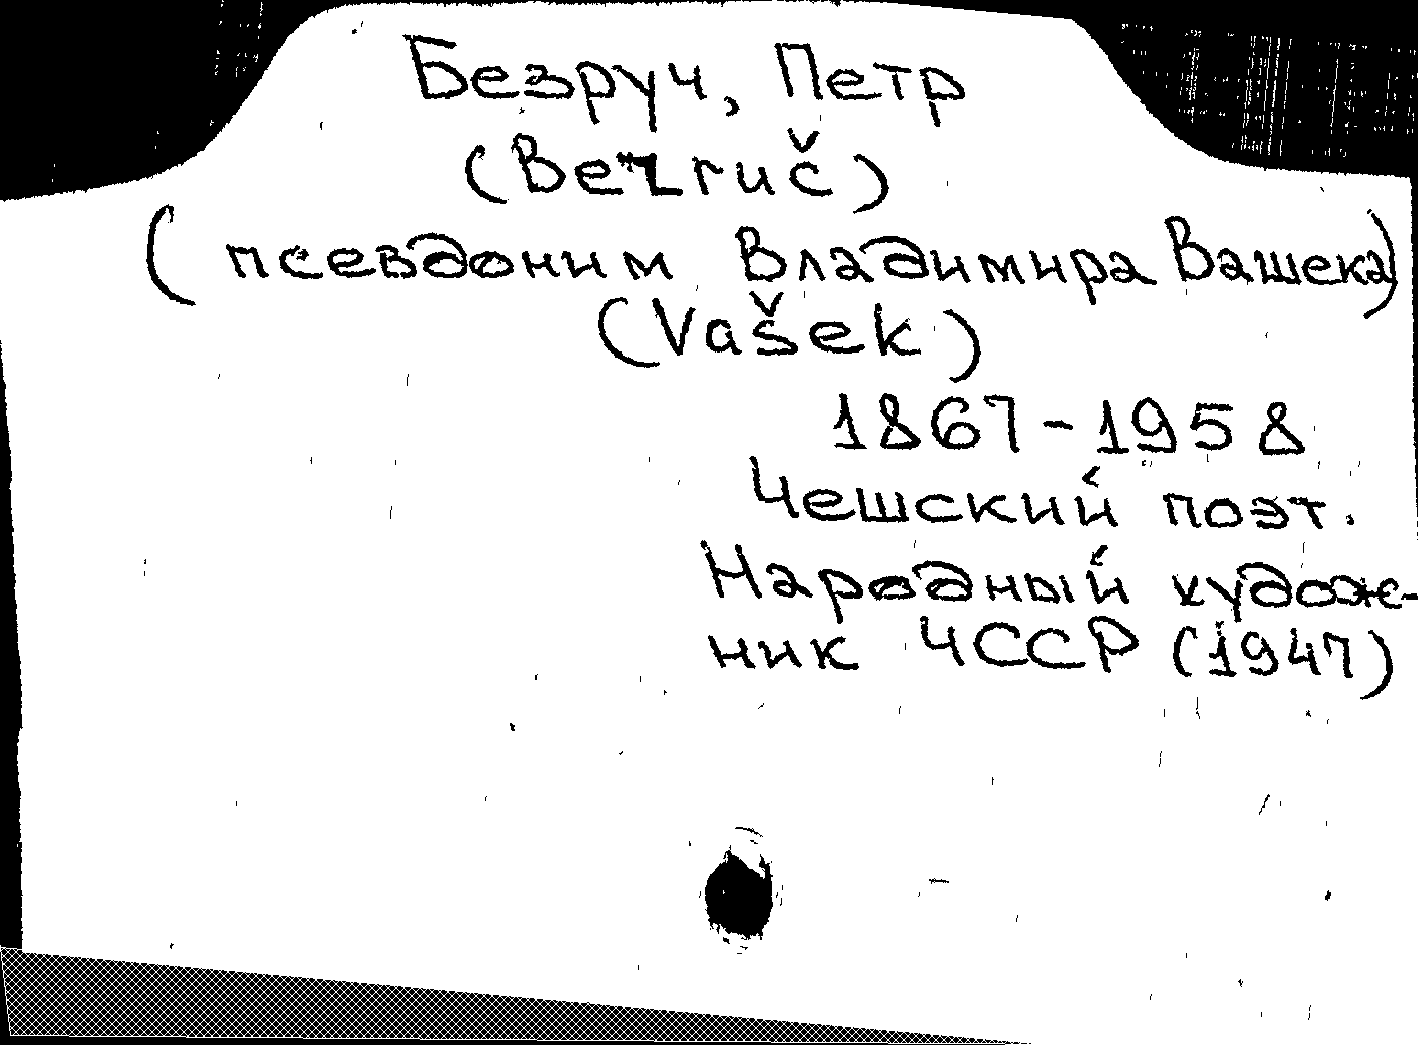 Безруч, Петр
(Bezruč)
(псевдоним Владимира Вашека)
(Vašek)
1867-1958
Чешский поэт.
Народный худож-
ник ЧССР (1947)